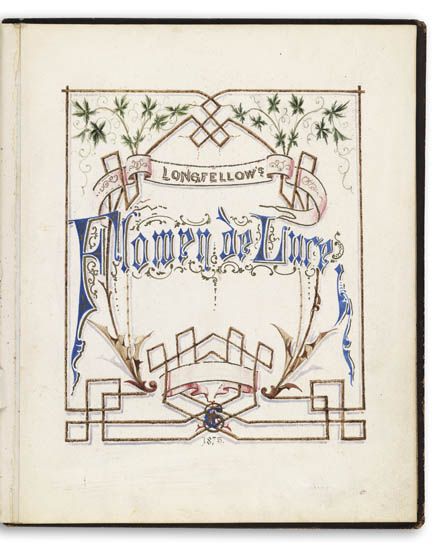 LONGFELLOW'S
Flower de Luce
1875.